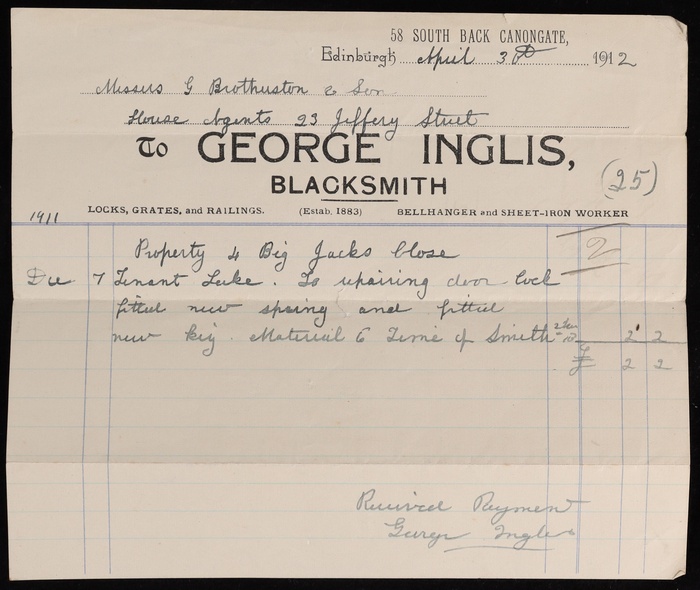 58 SOUTH BACK CANONGATE,
Edinburgh April 30th 1912
Messrs G Brotherston & Son
House Agents 23 Jeffery Street
To GEORGE INGLIS,
(25)
BLACKSMITH
LOCKS, GRATES, and RAILINGS. (Estab. 1883) BELLHANGER and SHEET-IRON WORKER
1911
Property 4 Big Jacks Close
2
Dec 7 Tenant Luke. To repairing door lock
fitted new spring and fitted
new key. Material 6 Time of Smith 2 2
£ 2 2
Received Payment
George Inglis